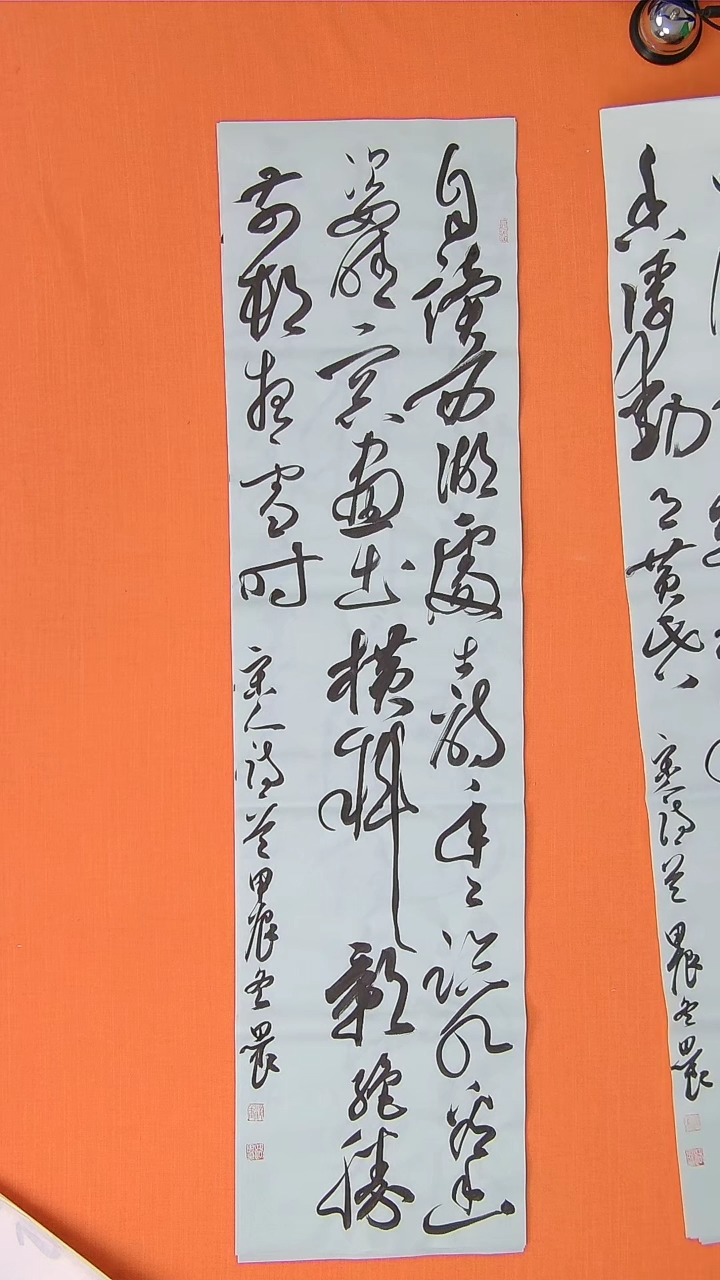 香浮動月黃昏
宋詩首 甲辰冬
自讀西湖處士詩年年臨水看幽
姿晴窗畫出橫斜影絕勝
前村夜雪時
宋人詩首甲辰冬